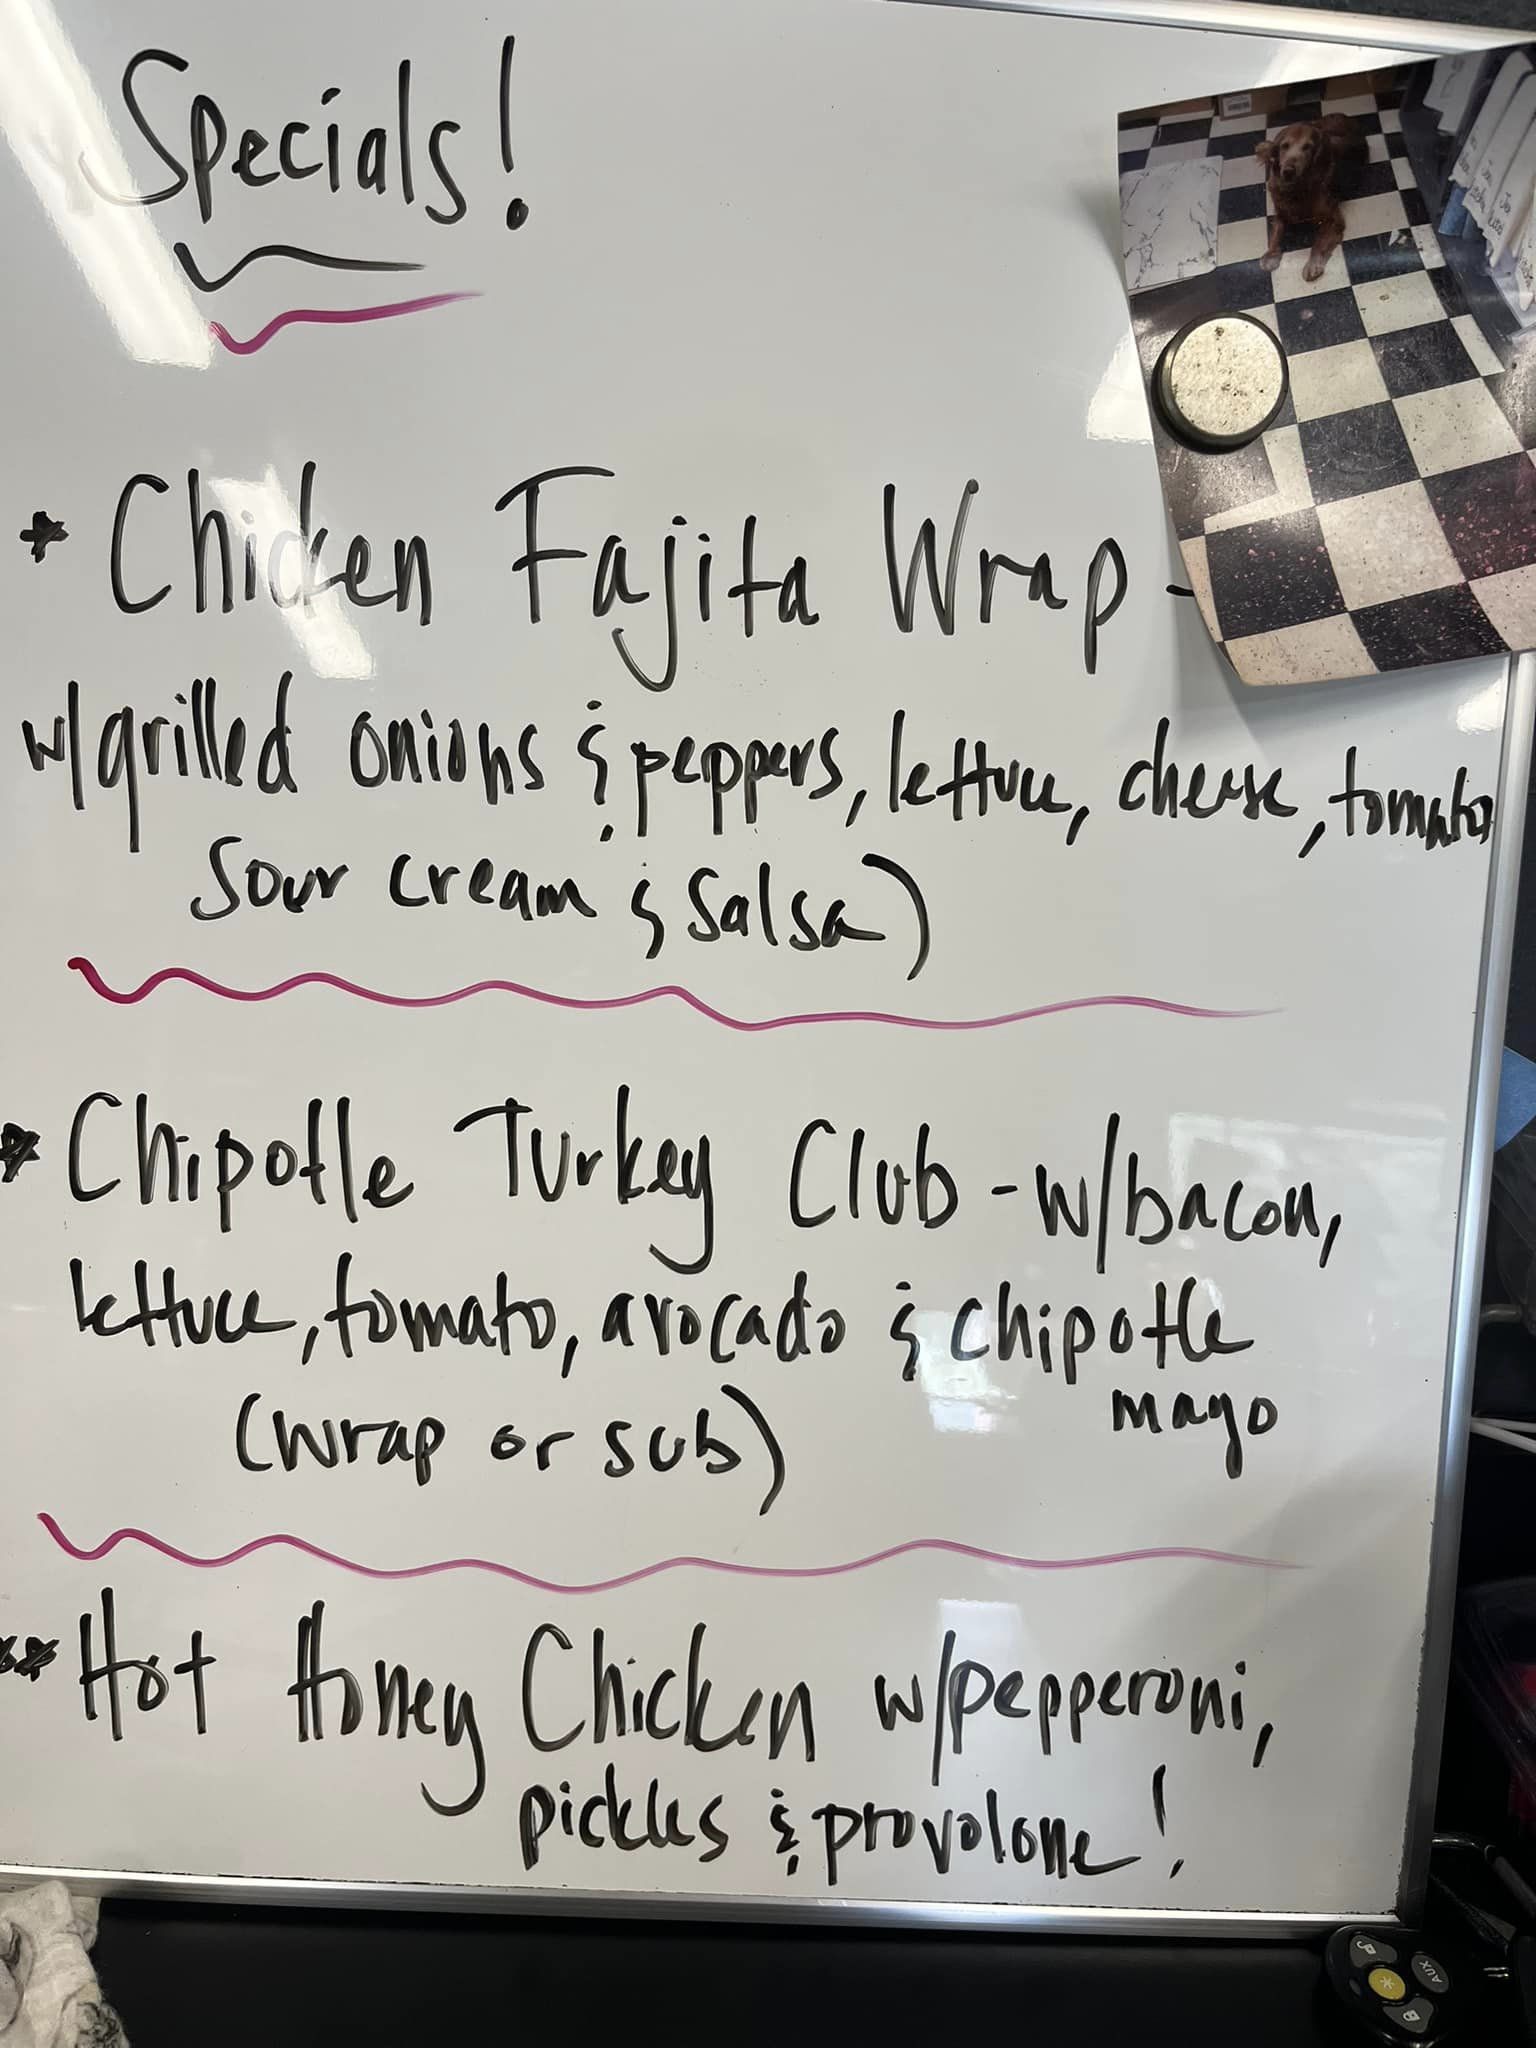 Specials!
* Chicken Fajita Wrap -
w/grilled onions & peppers, lettuce, cheese, tomato,
sour cream & salsa)
* Chipotle Turkey Club - w/bacon,
lettuce, tomato, avocado & chipotle
mayo
(wrap or sub)
** Hot Honey Chicken w/pepperoni,
pickles & provolone!
AUX